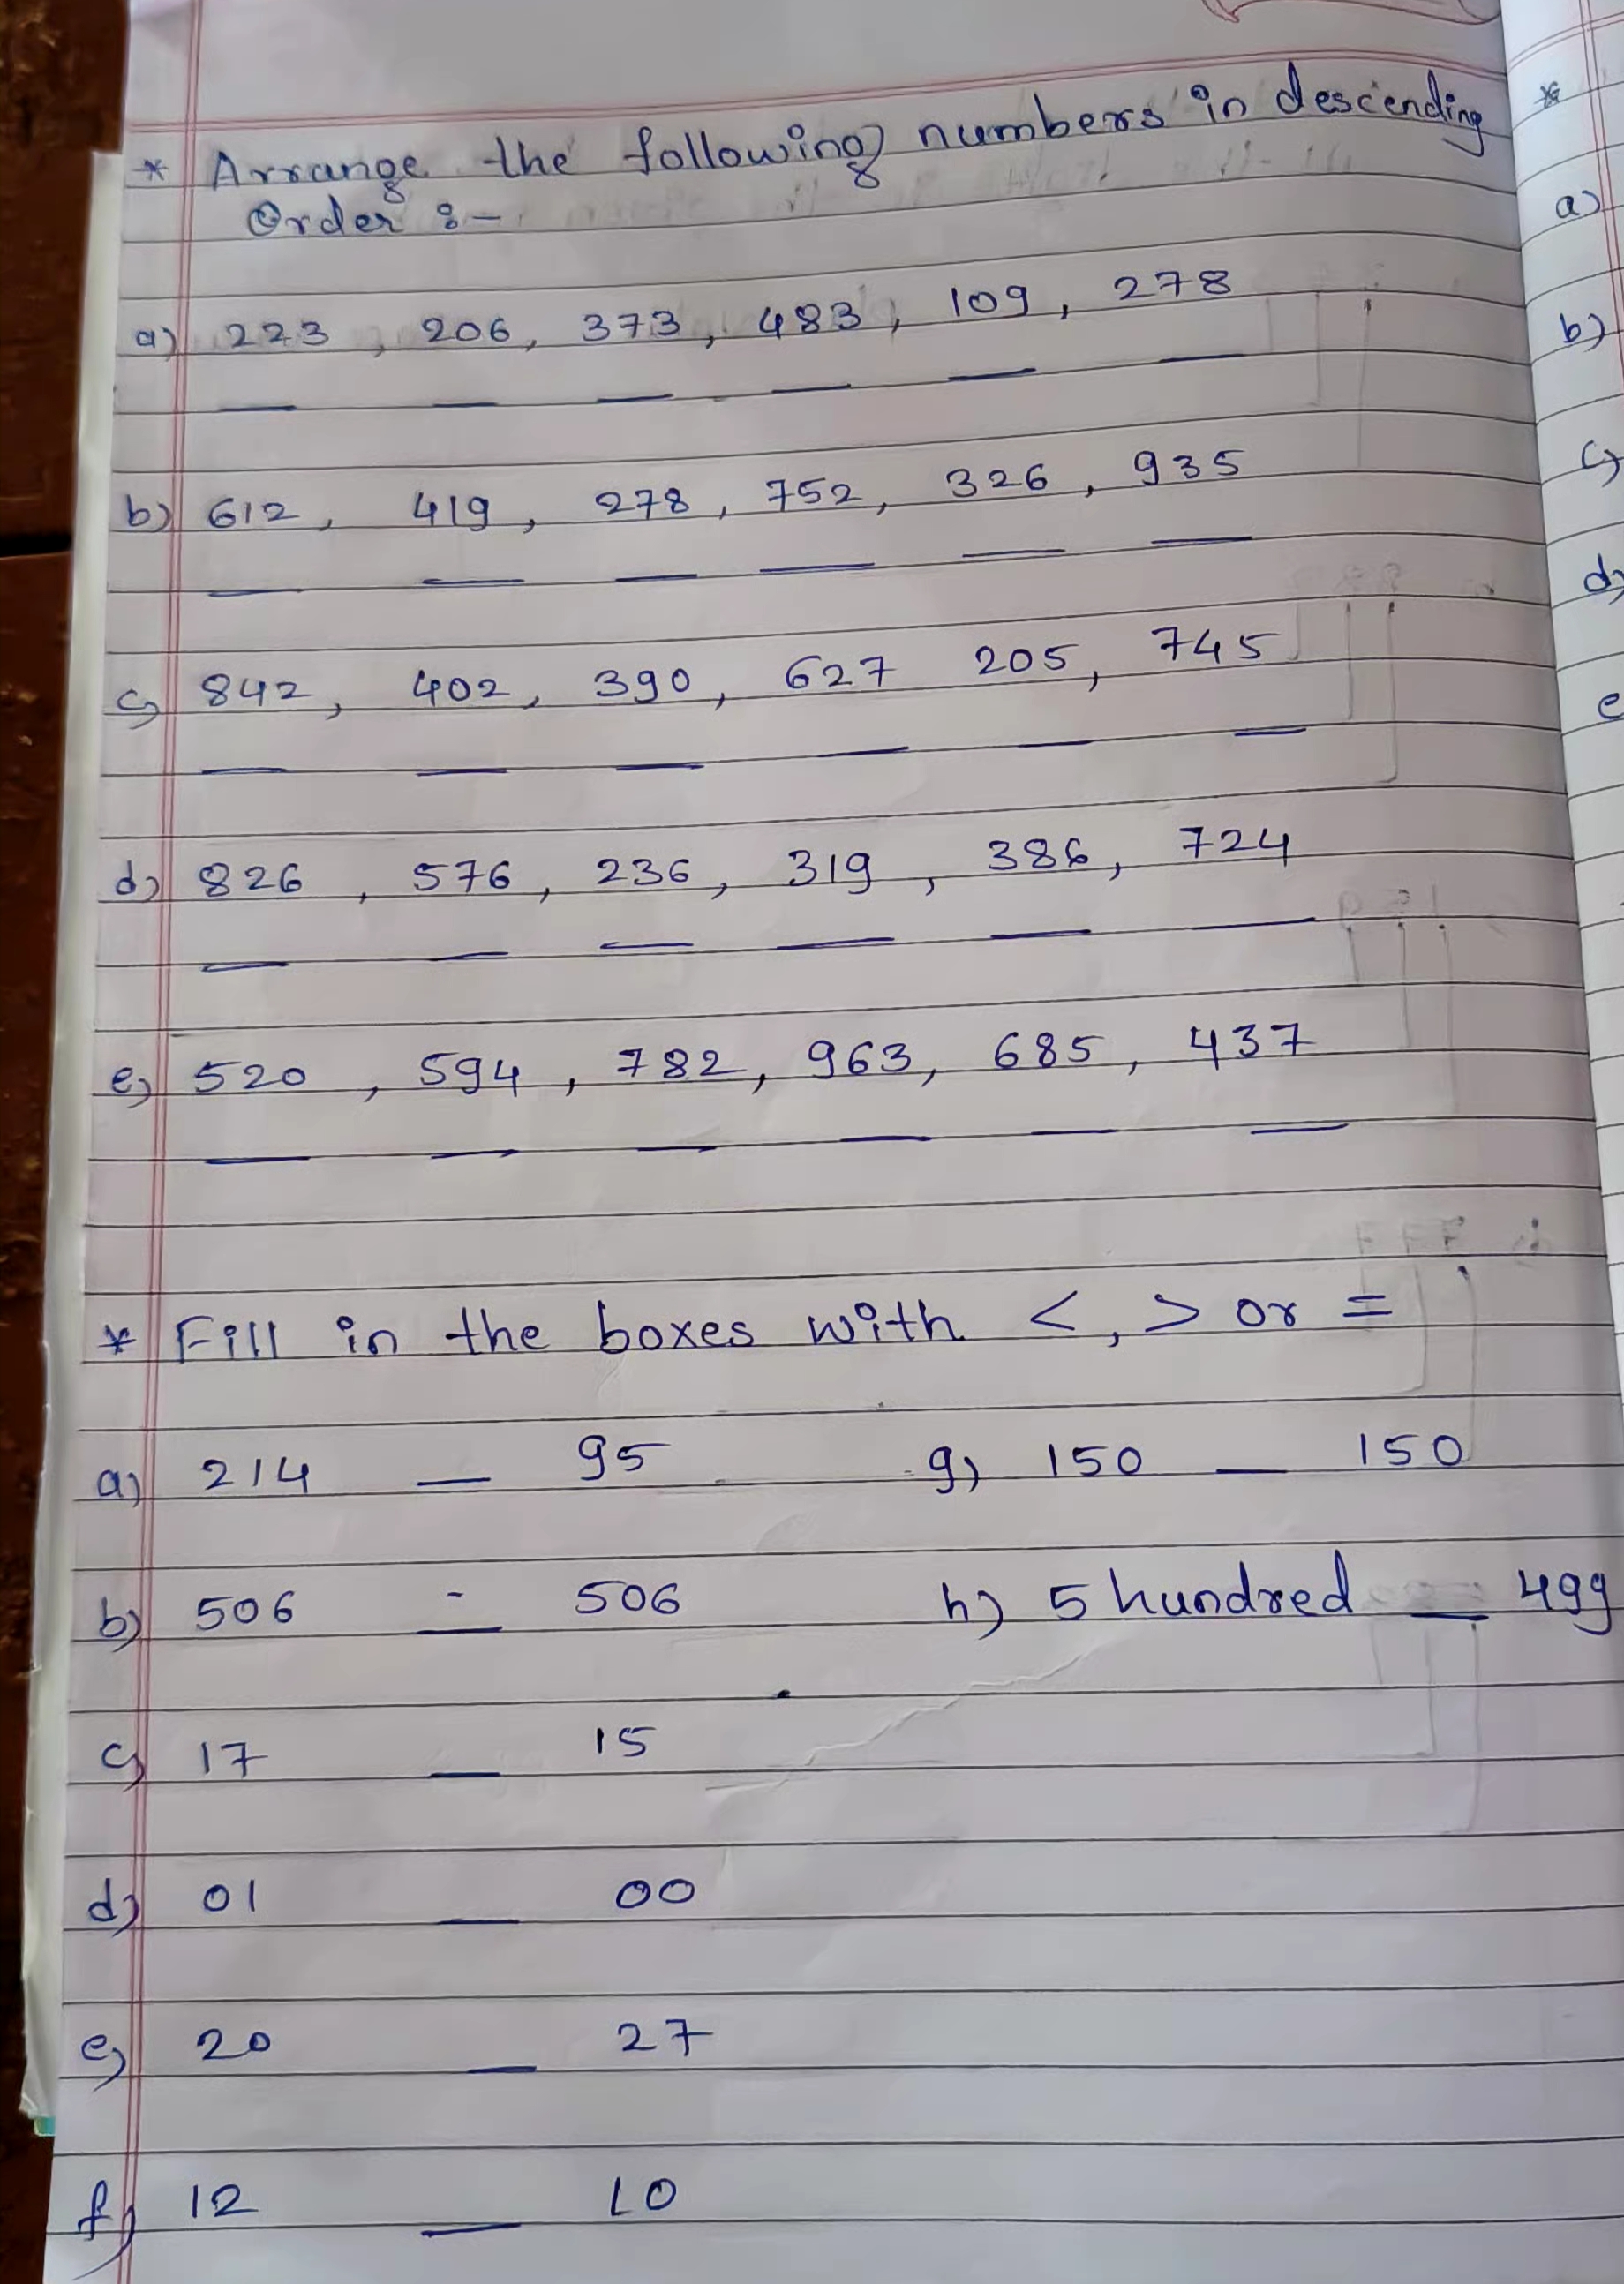 * Arrange the following numbers in descending
Order :-
a) 223, 206, 373, 483, 109, 278
b) 612, 419, 278, 752, 326, 935
c) 842, 402, 390, 627 205, 745
d) 826, 576, 236, 319, 386, 724
e) 520, 594, 782, 963, 685, 437
* Fill in the boxes with <, > or =
a) 214 — 95 g) 150 — 150
b) 506 — 506 h) 5 hundred — 499
c) 17 — 15
d) 01 — 00
e) 20 — 27
f) 12 — 10
*
a)
b)
c)
d)
e